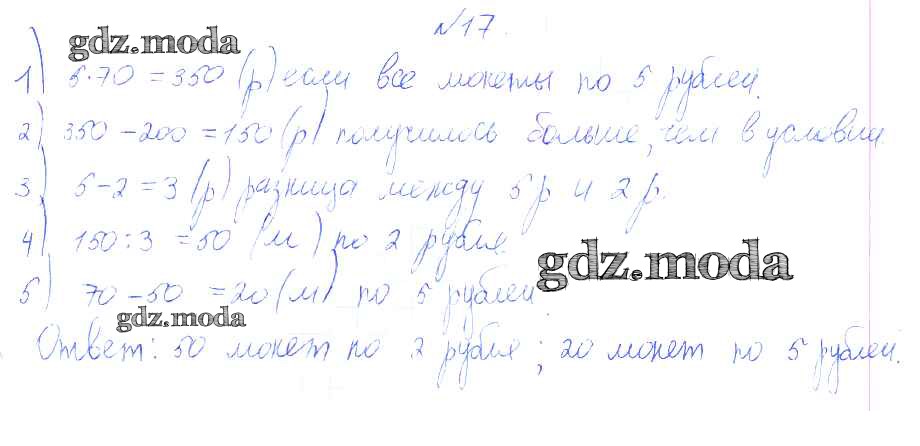 №17.
gdz.moda
1) 5·70 = 350 (р) если все монеты по 5 рублей.
2) 350 - 200 = 150 (р) получилось больше, чем в условии.
3) 5 - 2 = 3 (р) разница между 5 р и 2 р.
4) 150 : 3 = 50 (м) по 2 рубля
gdz.moda
5) 70 - 50 = 20 (м) по 5 рублей.
gdz.moda
Ответ: 50 монет по 2 рубля; 20 монет по 5 рублей.